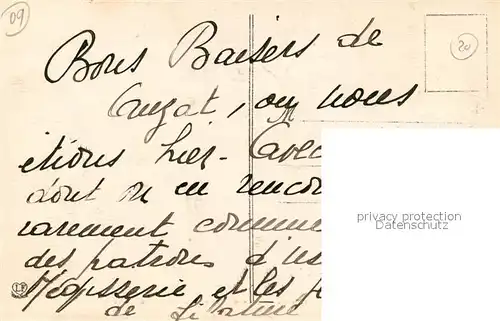 09
20
Bons Baisers de
Auzat, où nous
étions hier. Avec
dont on en rencon
rarement comme
des patrons d'u
Mégisserie et les
de
privacy protection
Datenschutz